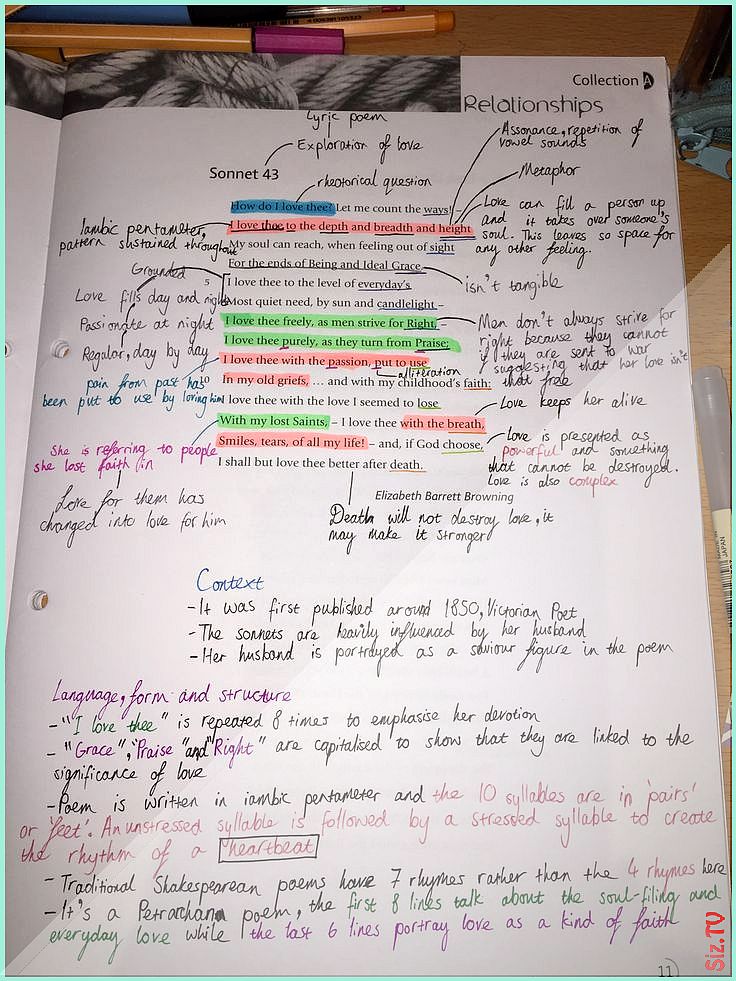 Collection A
Relationships
Lyric poem
Exploration of love
Sonnet 43
rhetorical question
Assonance, repetition of
vowel sounds
Metaphor
Love can fill a person up
and it takes over someone's
soul. This leaves so space for
any other feeling.
Iambic pentameter,
pattern sustained throughout
How do I love thee? Let me count the ways! –
I love thee to the depth and breadth and height
My soul can reach, when feeling out of sight
For the ends of Being and Ideal Grace.
isn't tangible
Grounded
Love fills day and night
Passionate at night
Regular, day by day
5 I love thee to the level of everyday's
Most quiet need, by sun and candlelight –
I love thee freely, as men strive for Right, –
I love thee purely, as they turn from Praise;
I love thee with the passion, put to use
alliteration
10 In my old griefs, ... and with my childhood's faith;
I love thee with the love I seemed to lose
With my lost Saints, – I love thee with the breath,
Smiles, tears, of all my life! – and, if God choose,
I shall but love thee better after death.
Elizabeth Barrett Browning
Men don't always strive for
right because they cannot
if they are sent to war
suggesting that her love isn't
that free
pain from past has
been put to use by loving him
Love keeps her alive
She is referring to people
she lost faith in
Love for them has
changed into love for him
Love is presented as
powerful and something
that cannot be destroyed.
Love is also complex
Death will not destroy love, it
may make it stronger
Context
- It was first published around 1850, Victorian Poet
- The sonnets are heavily influenced by her husband
- Her husband is portrayed as a saviour figure in the poem
Language, form and structure
- "I love thee" is repeated 8 times to emphasise her devotion
- "Grace", "Praise" and "Right" are capitalised to show that they are linked to the
significance of love
- Poem is written in iambic pentameter and the 10 syllables are in 'pairs'
or 'feet'. An unstressed syllable is followed by a stressed syllable to create
the rhythm of a heartbeat
- Traditional Shakespearean poems have 7 rhymes rather than the 4 rhymes here
- It's a Petrarchan poem, the first 8 lines talk about the soul-filing and
everyday love while the last 6 lines portray love as a kind of faith
11
JAPAN
Siz.TV